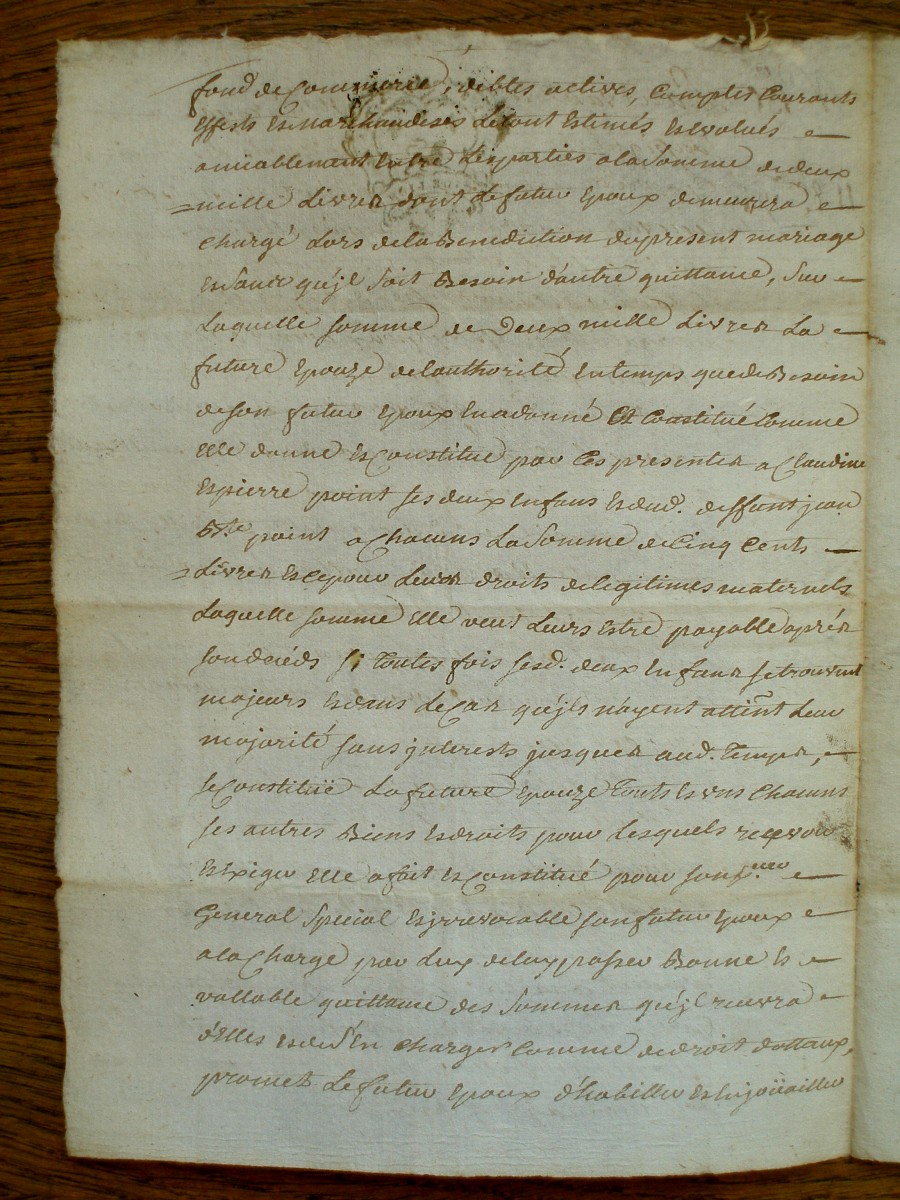 fond de Commerce, debtes actives, Comptes Courants
Effects et Marchandises Le tout Estimés et Evalués
amiablement Entre Les parties a la Somme de deux
mille Livres dont Le futur Epoux demeurera
chargé Lors de la Benediction du present mariage
et Sans qu'jl soit Besoin d'autre quittance, Sur
Laquelle somme de Deux mille Livres La
future Epouze de l'authorité En temps que de Besoin
de son futur Epoux En a donné Et Constitué Comme
Elle donne et Constitue par Ces presentes a Claudine
et pierre point ses deux Enfans et dud. deffunt jean
Bte point a Chacuns La Somme de Cinq Cents
Livres et Ce pour Leurs droits de Legitimes maternels
Laquelle somme Elle veut Leurs Estre payable après
son decéds si toutes fois sesd. deux Enfans se trouvent
majeurs et dans Le Cas qu'jls n'ayent attint Leur
majorité sans jnterests jusques aud. temps,
se Constituë La future Epouze touts et uns Chacuns
ses autres Biens et droits pour Lesquels recevoir
et Exiger Elle a fait et Constitué pour son pr.eur
General Special et jrrevocable son futur Epoux
a la Charge par Luy de luy passer Bonne et
vallable quittance des Sommes qu'jl recevra
d'Elles et de s'En charger Comme de droit dottaux,
promet Le futur Epoux d'habiller et Enjoüailler